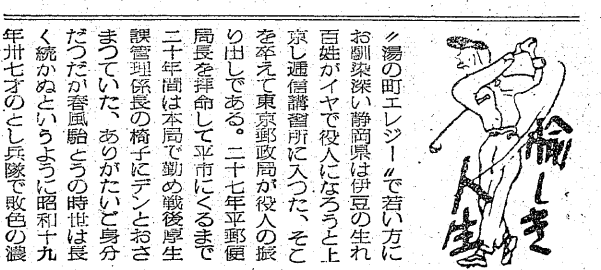 愉しき人生
〃湯の町エレジー〃で若い方に
お馴染深い静岡県は伊豆の生れ
百姓がイヤで役人になろうと上
京し通信講習所に入つた、そこ
を卒えて東京郵政局が役人の振
り出しである。二十七年平郵便
局長を拝命して平市にくるまで
二十年間は本局で勤め戦後厚生
課管理係長の椅子にデンとおさ
まつていた、ありがたいご身分
だつだが春風駘とうの時世は長
く続かぬというように昭和十九
年卅七才のとし兵隊で敗色の濃